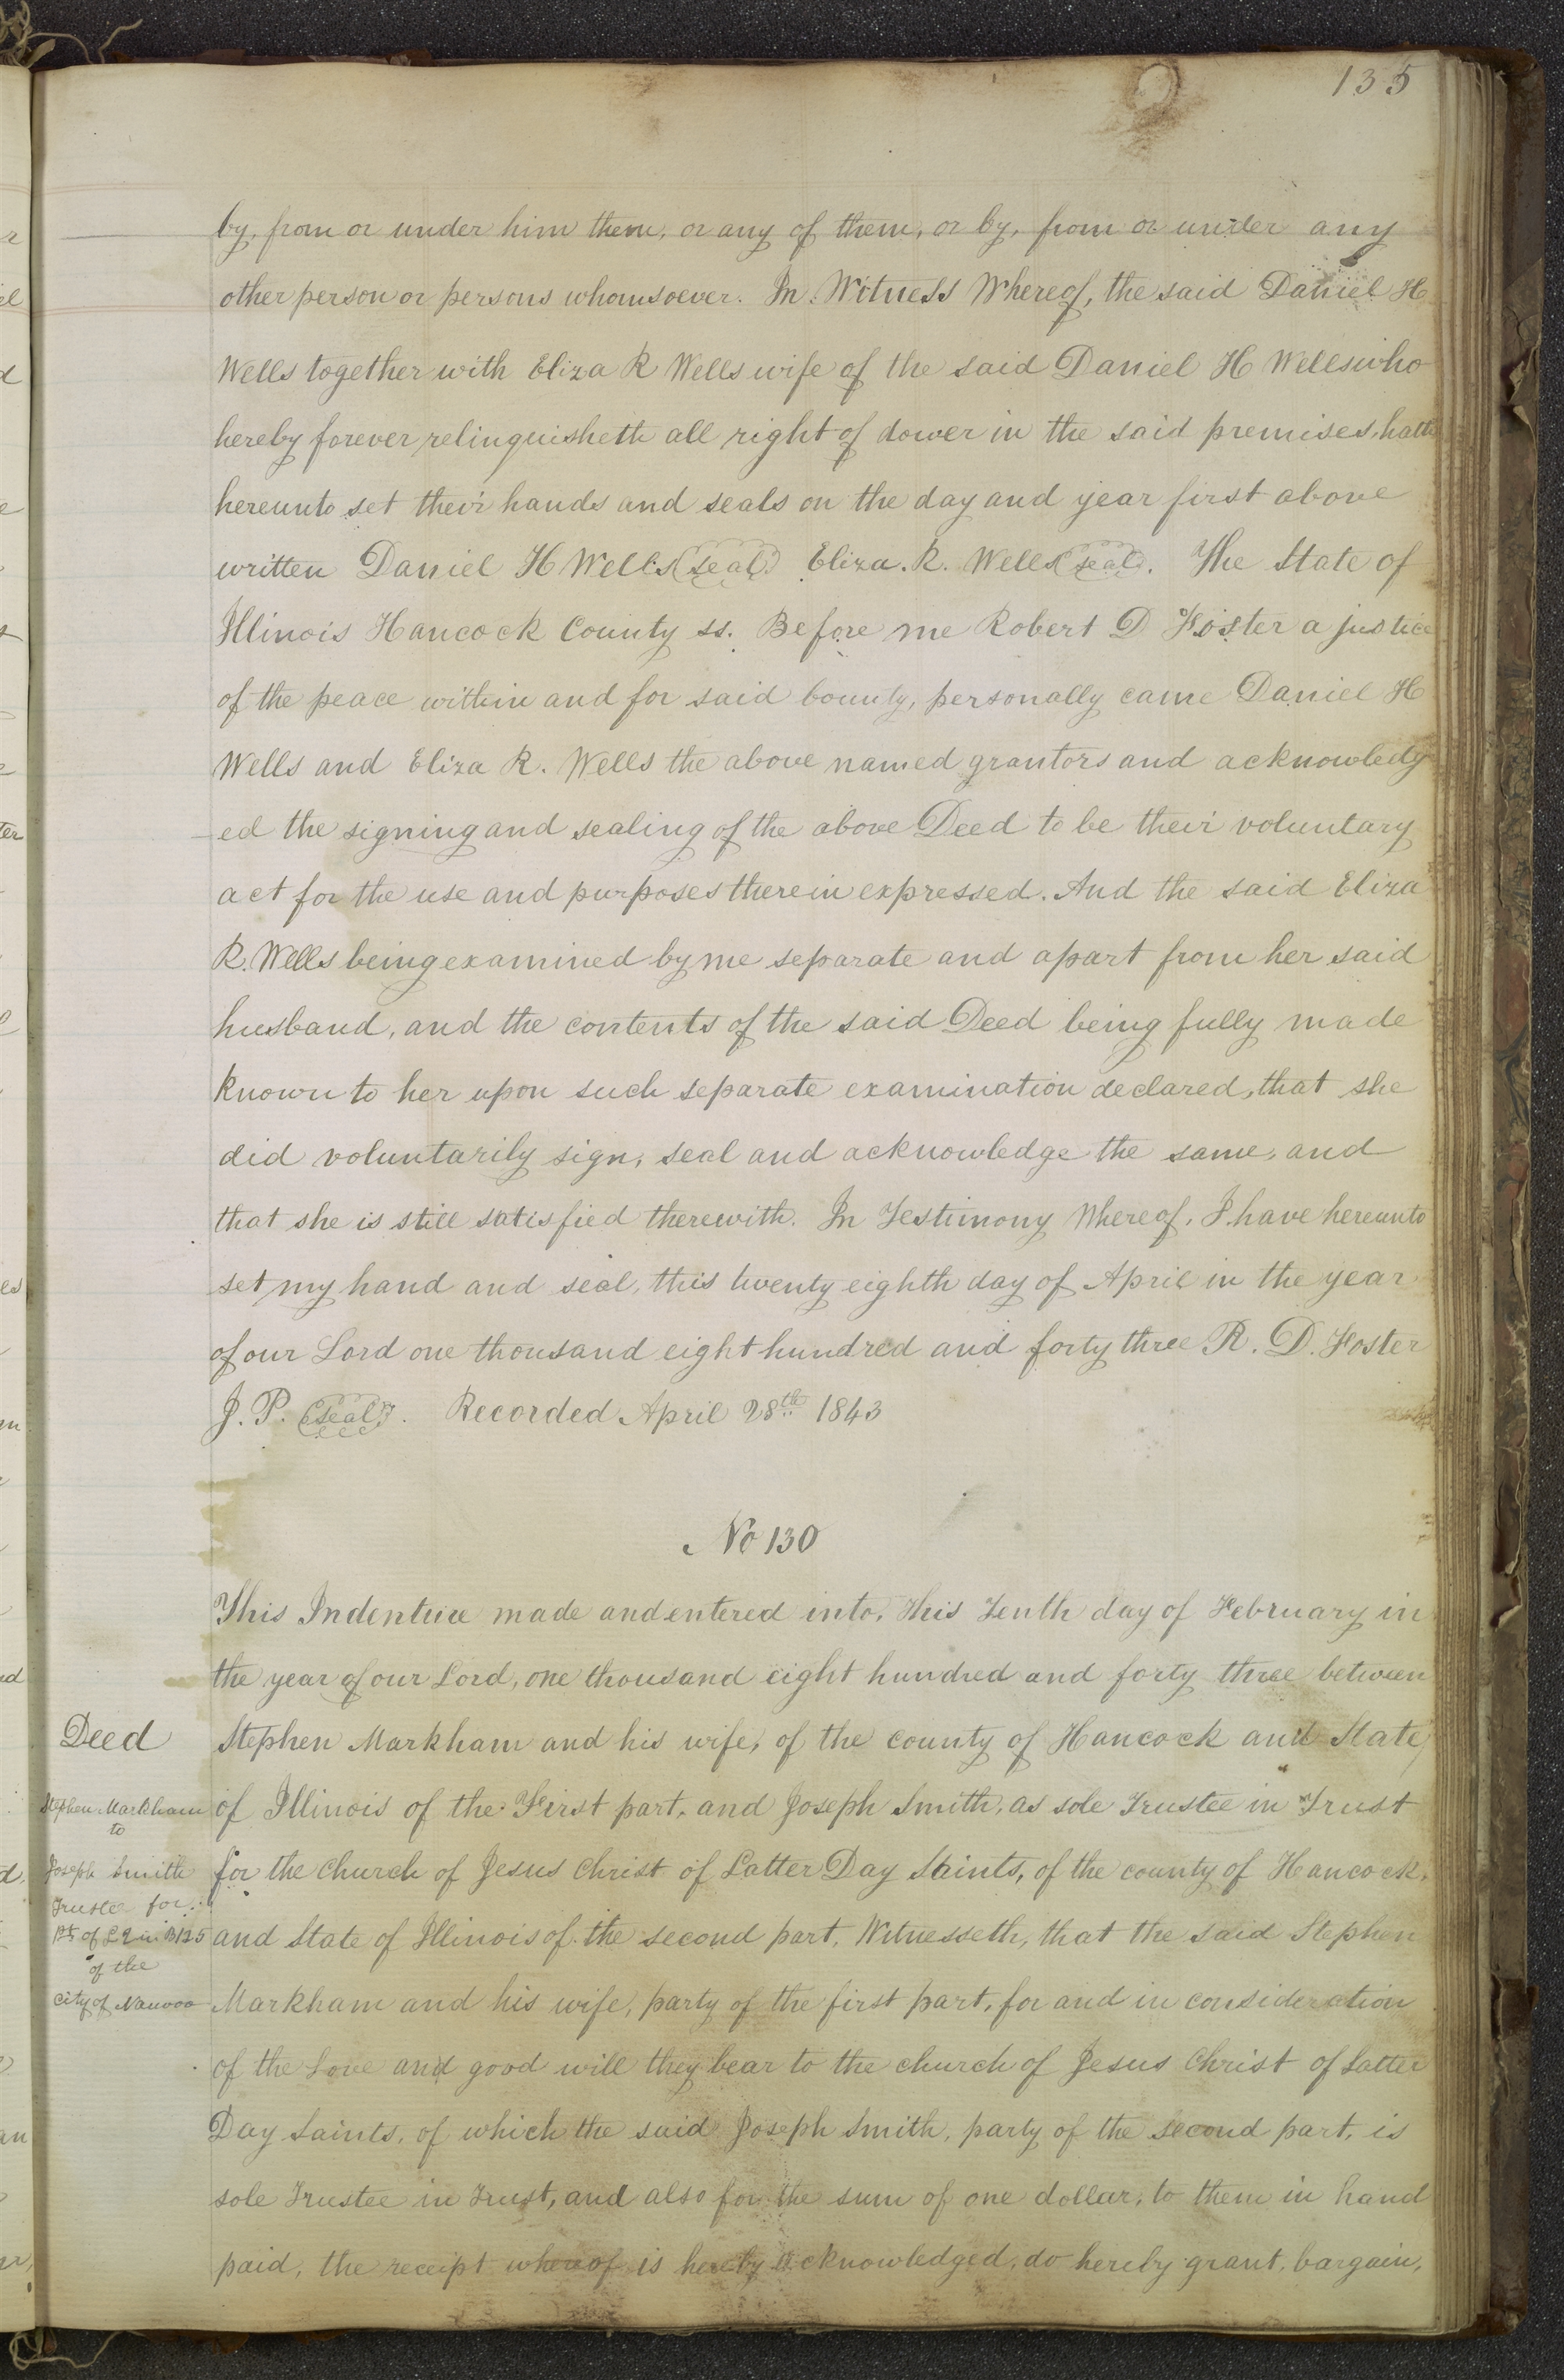 135
by, from or under him them, or any of them, or by, from or under any
other person or persons whomsoever. In Witness Whereof, the said Daniel H
Wells together with Eliza R Wells wife of the said Daniel H Wells who
hereby forever relinquisheth all right of dower in the said premises, hath
hereunto set their hands and seals on the day and year first above
written Daniel H Wells (seal) Eliza. R. Wells (seal). The State of
Illinois Hancock County ss. Before me Robert D Foster a justice
of the peace within and for said County, personally came Daniel H
Wells and Eliza R. Wells the above named grantors and acknowledg
ed the signing and sealing of the above Deed to be their voluntary
act for the use and purposes therein expressed. And the said Eliza
R. Wells being examined by me separate and apart from her said
husband, and the contents of the said Deed being fully made
known to her upon such separate examination declared, that she
did voluntarily sign, seal and acknowledge the same, and
that she is still satisfied therewith. In Testimony Whereof, I have hereunto
set my hand and seal, this twenty eighth day of April in the year
of our Lord one thousand eight hundred and forty three R. D. Foster
J. P. (seal). Recorded April 28th 1843
No 130
This Indenture made and entered into, This Tenth day of February in
the year of our Lord, one thousand eight hundred and forty three between
Stephen Markham and his wife, of the county of Hancock and State
of Illinois of the First part, and Joseph Smith, as sole Trustee in Trust
for the Church of Jesus Christ of Latter Day Saints, of the county of Hancock,
and State of Illinois of the second part, Witnesseth, that the said Stephen
Markham and his wife, party of the first part, for and in consideration
of the Love and good will they bear to the church of Jesus Christ of Latter
Day Saints, of which the said Joseph Smith, party of the second part, is
sole Trustee in Trust, and also for the sum of one dollar, to them in hand
paid, the receipt whereof is hereby acknowledged, do hereby grant, bargain,
Deed
Stephen Markham
to
Joseph Smith
Trustee for
Pt of L2 in B125
of the
City of Nauvoo